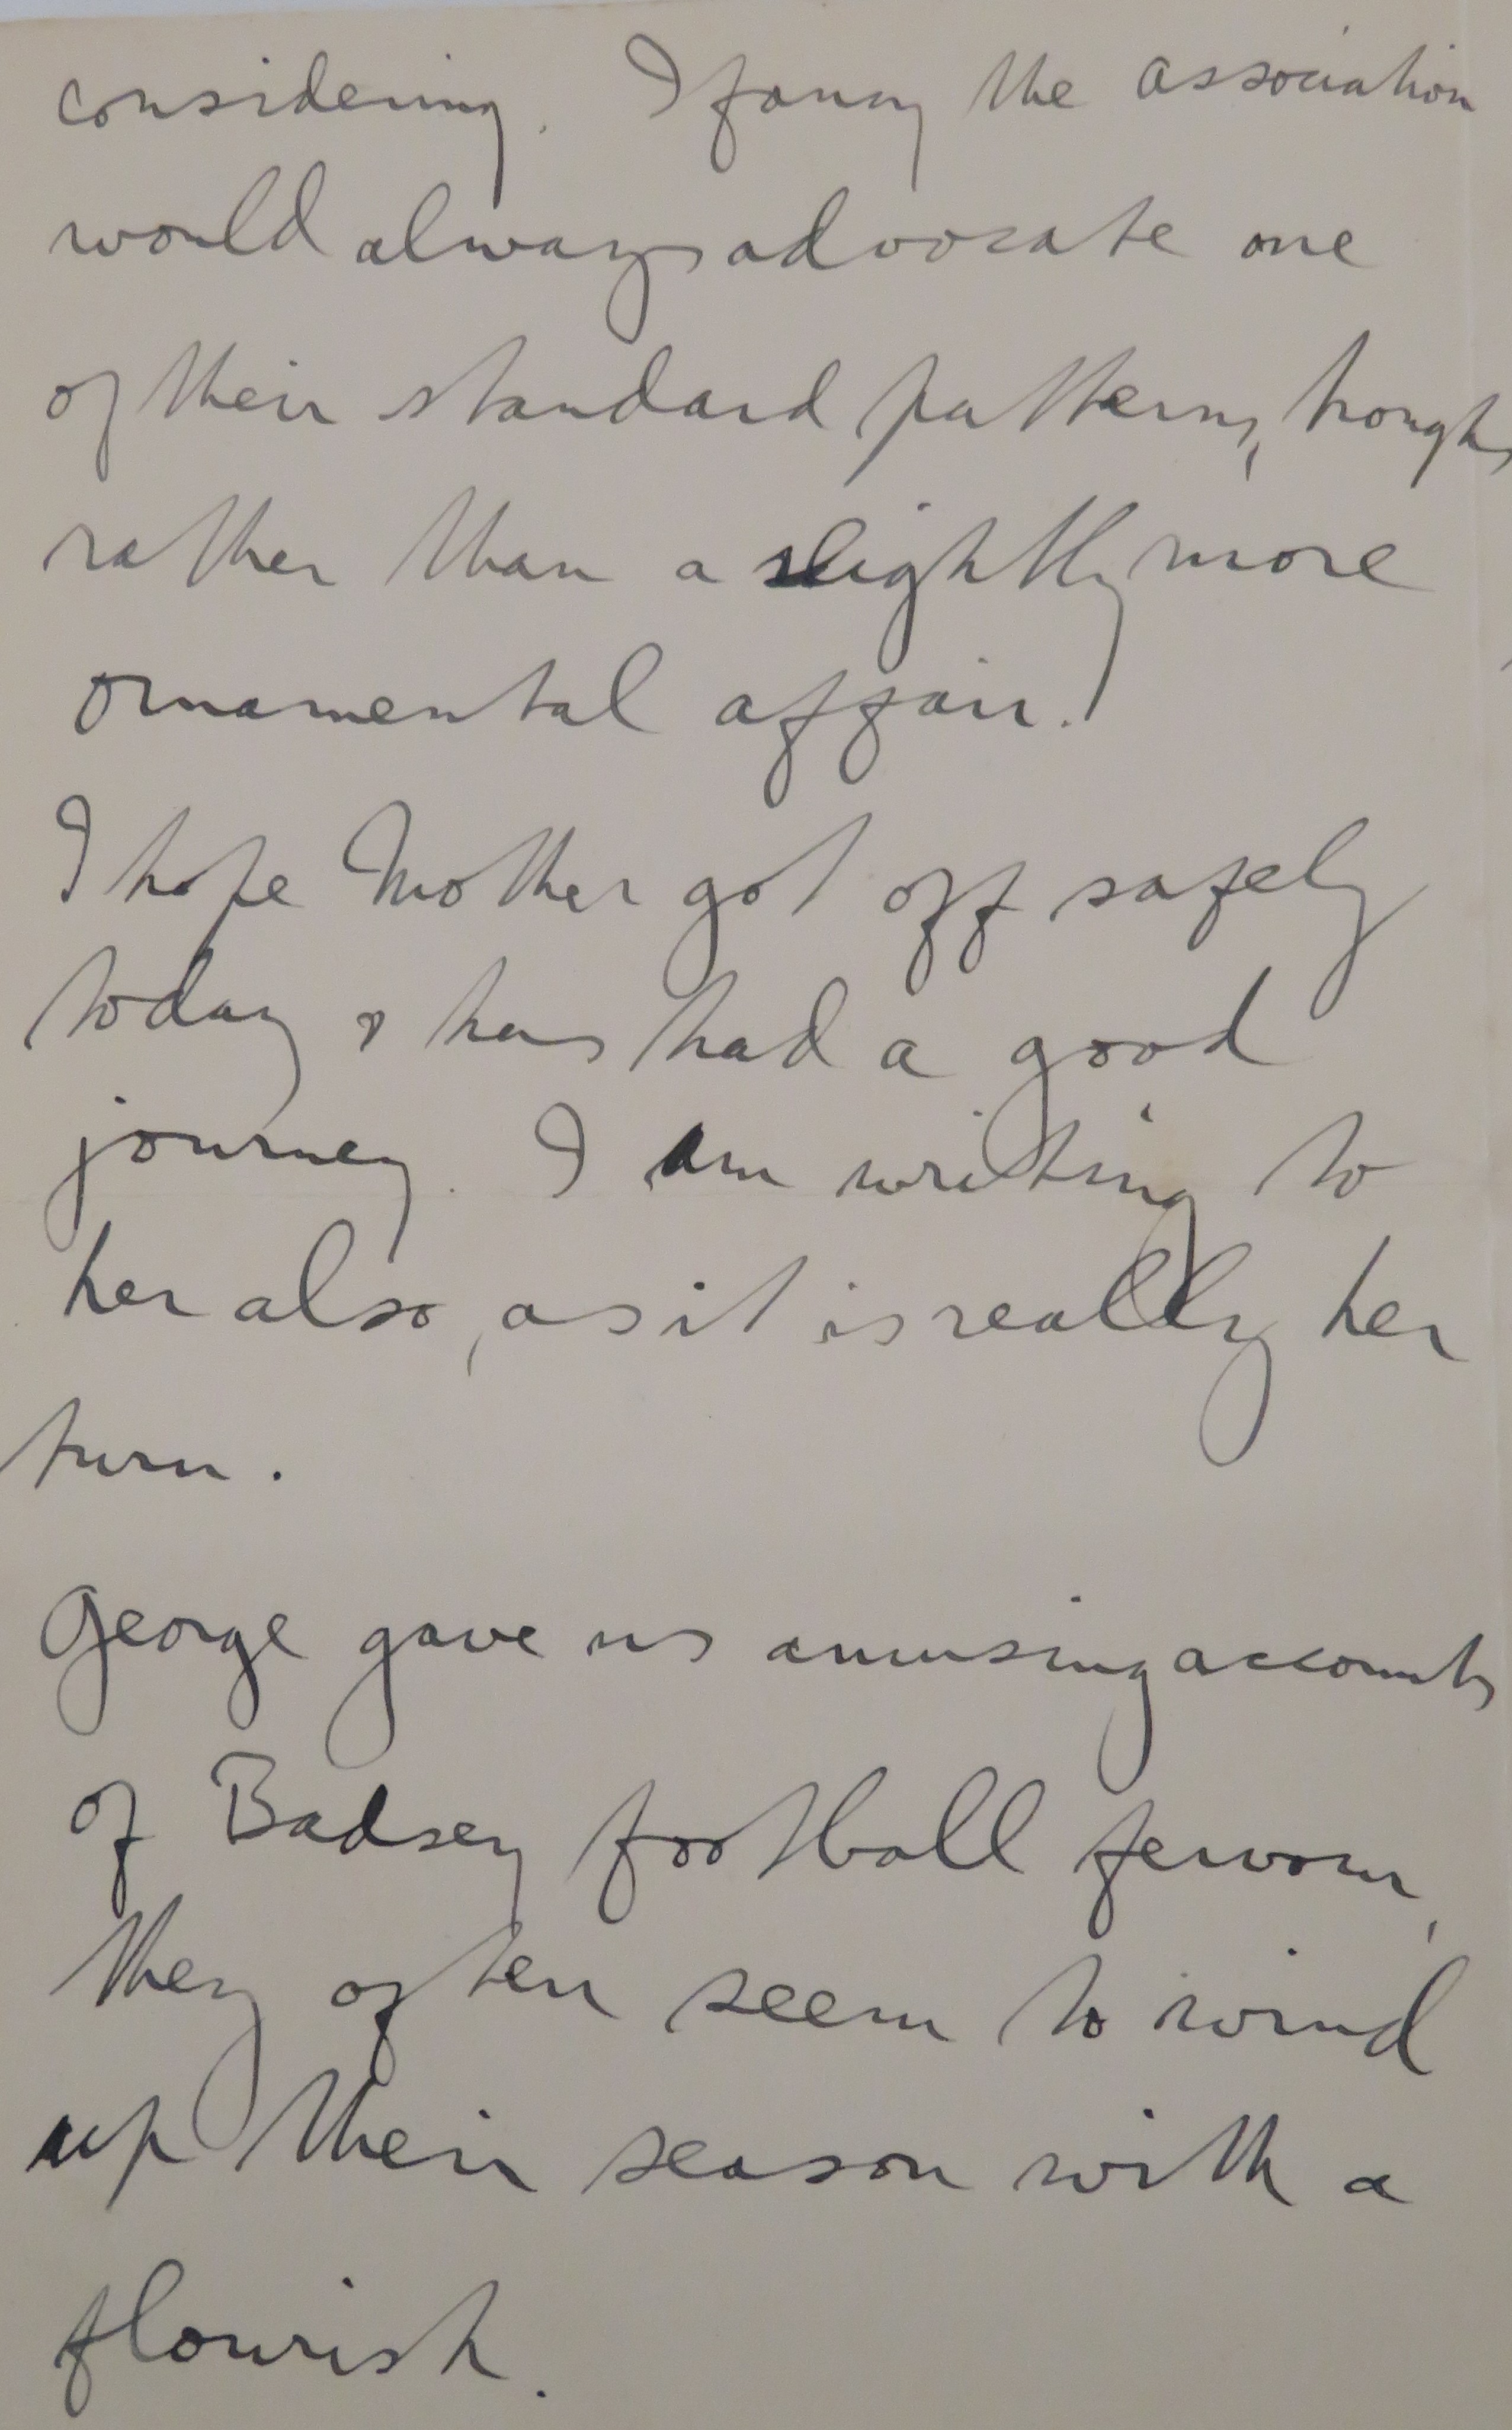 considering. I fancy the association
would always advocate one
of their standard patterns, troughs
rather than a slightly more
ornamental affair.
I hope Mother got off safely
today & has had a good
journey. I am writing to
her also, as it is really her
turn.
George gave us amusing accounts
of Badsey football fervour,
they often seem to wind
up their season with a
flourish.